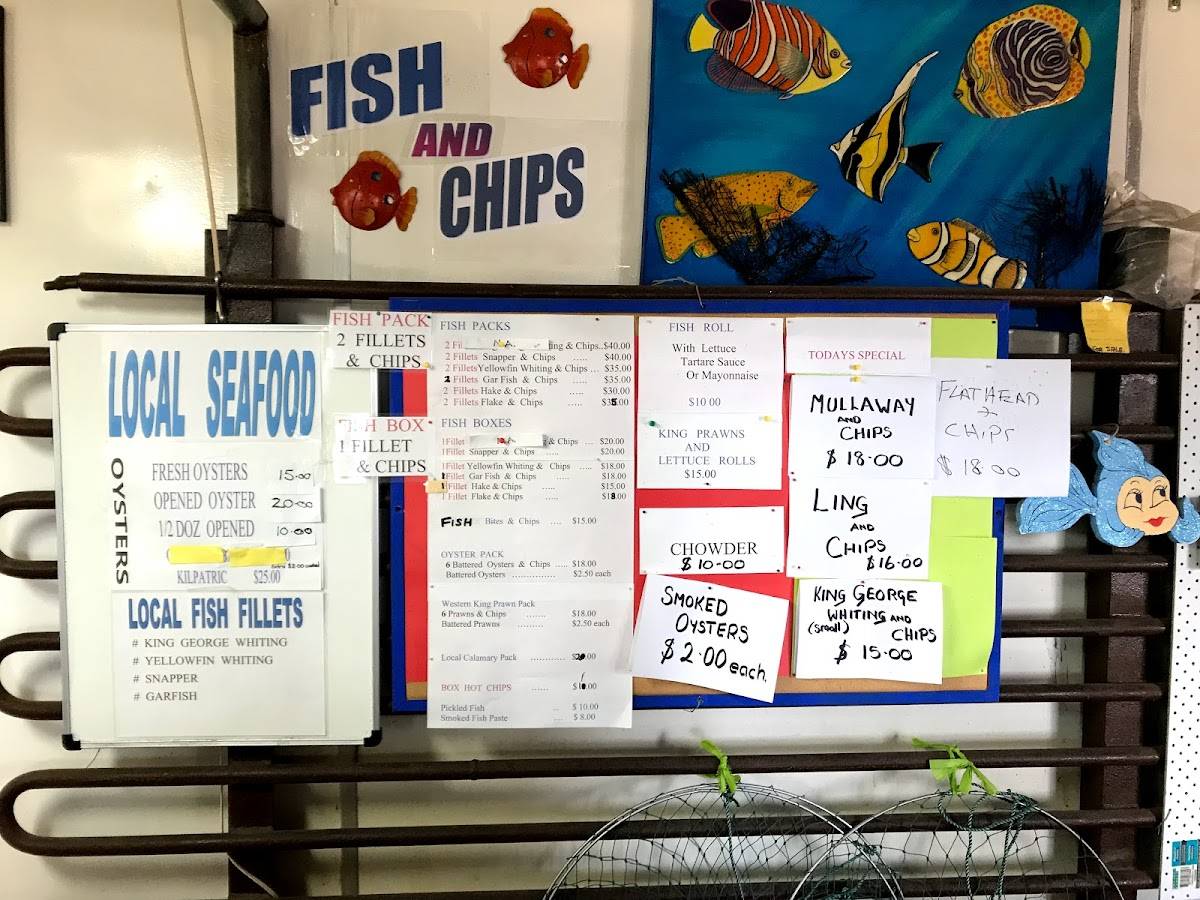 FISH
AND
CHIPS
LOCAL SEAFOOD
OYSTERS
FRESH OYSTERS 15.00
OPENED OYSTER 20.00
1/2 DOZ OPENED 10.00
KILPATRIC $25.00
LOCAL FISH FILLETS
# KING GEORGE WHITING
# YELLOWFIN WHITING
# SNAPPER
# GARFISH
FISH PACK
2 FILLETS
& CHIPS
FISH BOX
1 FILLET
& CHIPS
FISH PACKS
2 Fil ing & Chips..$40.00
2 Fillets Snapper & Chips ..... $40.00
2 Fillets Yellowfin Whiting & Chips ... $35.00
2 Fillets Gar Fish & Chips ..... $35.00
2 Fillets Hake & Chips ..... $30.00
2 Fillets Flake & Chips ..... $35.00
FISH BOXES
1Fillet & Chips ... $20.00
1Fillet Snapper & Chips ..... $20.00
1Fillet Yellowfin Whiting & Chips ..... $18.00
Fillet Gar Fish & Chips ..... $18.00
Fillet Hake & Chips ..... $15.00
1Fillet Flake & Chips ..... $18.00
FISH Bites & Chips ..... $15.00
OYSTER PACK
6 Battered Oysters & Chips ..... $18.00
Battered Oysters ............... $2.50 each
Western King Prawn Pack
6 Prawns & Chips ....... $18.00
Battered Prawns ......... $2.50 each
Local Calamary Pack ............ $20.00
BOX HOT CHIPS ...... .00
Pickled Fish .. $ 10.00
Smoked Fish Paste ... $ 8.00
FISH ROLL
With Lettuce
Tartare Sauce
Or Mayonnaise
$10 00
KING PRAWNS
AND
LETTUCE ROLLS
$15.00
CHOWDER
$10-00
SMOKED
OYSTERS
$2.00 each.
TODAYS SPECIAL
MULLAWAY
AND
CHIPS
$18.00
LING
AND
CHIPS
$16.00
KING GEORGE
WHITING AND
(small) CHIPS
$15.00
FLATHEAD
+
CHIPS
$18 00
FOR SALE